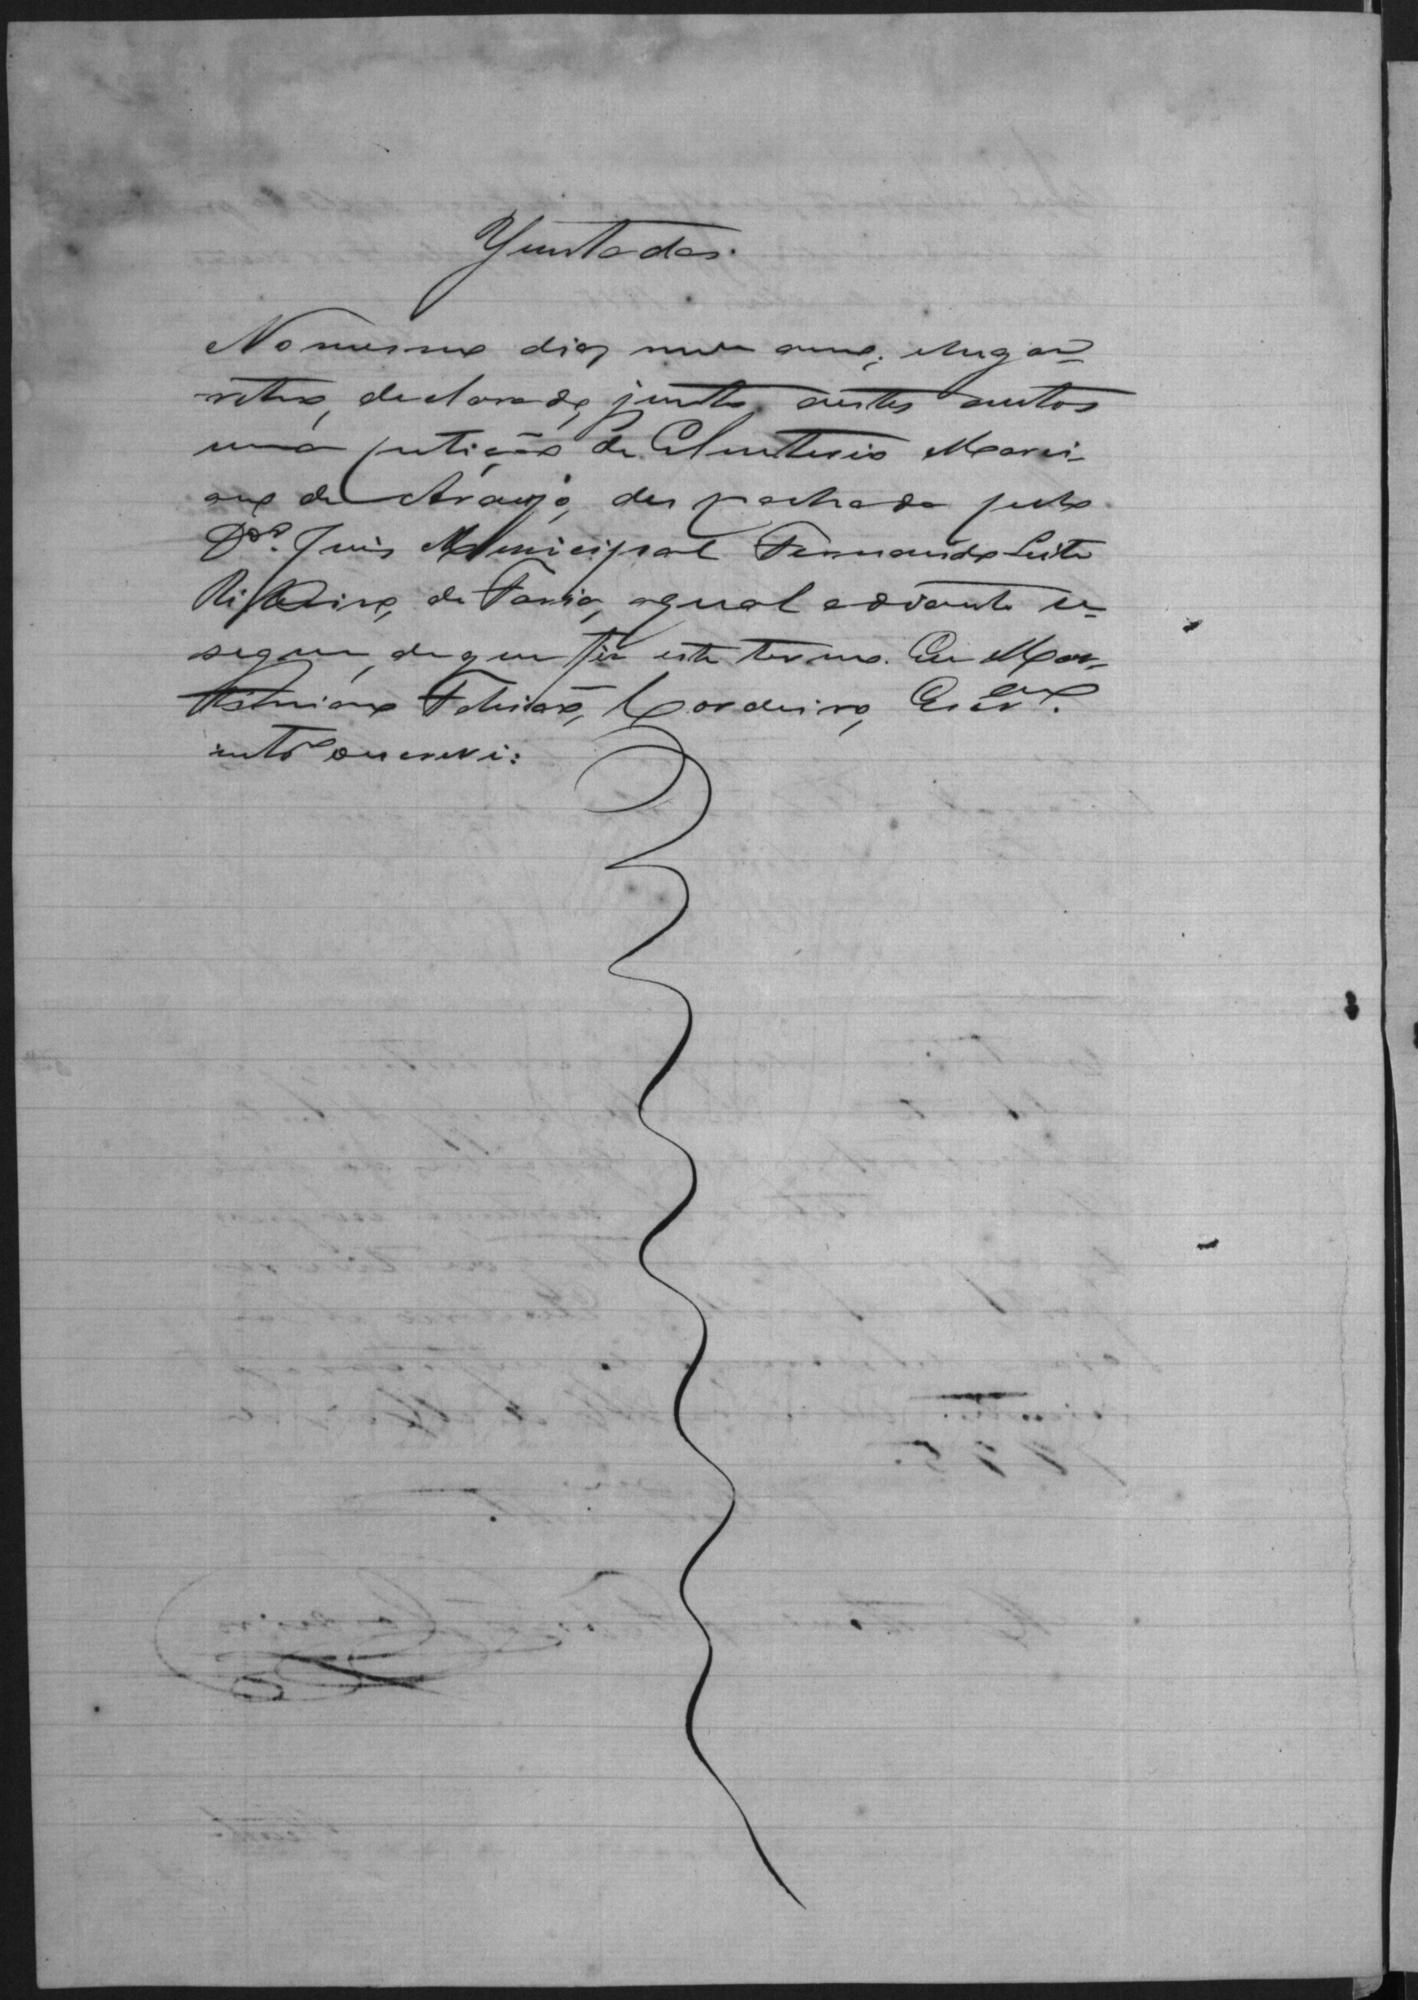 Juntada.
No mesmo dia, mes e anno, e lugar
retro, declarado, junto a estes autos
uma petição de Eleuterio Marci-
ano de Araujo, despachada pelo
Dor. Juis Municipal Fernando Leite
Ribeiro, de Faria, a qual adiante se
segue, de que fiz este termo. Eu
Feliciano, Cordeiro, Escrvam
intro escrevi: